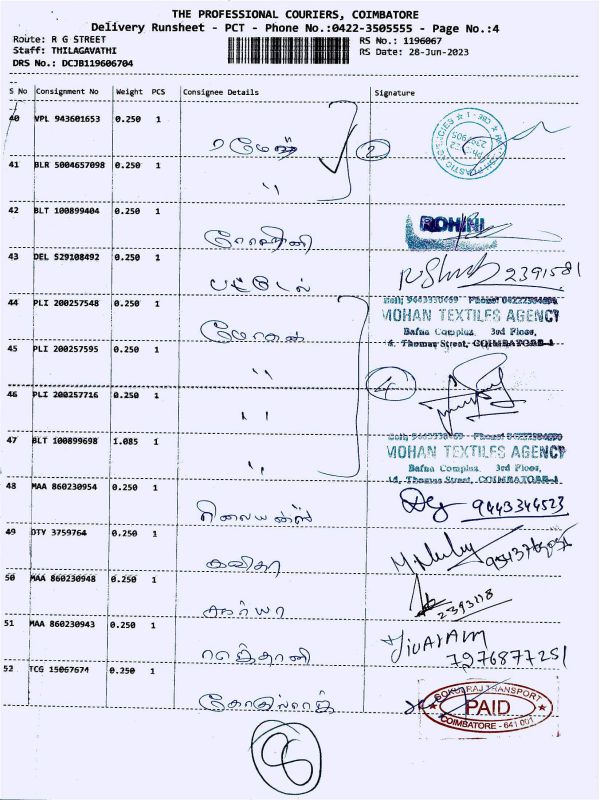 THE PROFESSIONAL COURIERS, COIMBATORE
Delivery Runsheet - PCT - Phone No.:0422-3505555 - Page No.:4
Route: R G STREET
Staff: THILAGAVATHI
DRS No.: DCJB119606704
RS No.: 1196067
RS Date: 28-Jun-2023
S No Consignment No Weight PCS Consignee Details Signature
40 VPL 943601653 0.250 1 ரமேஷ் 2
41 BLR 5004657098 0.250 1 "
42 BLT 100899404 0.250 1 ரோஹிணி ROHINI
43 DEL 529108492 0.250 1 பட்டேல் 2391581
44 PLI 200257548 0.250 1 மோகன்
MOHAN TEXTILES AGENCY
Bafna Complex, 3rd Floor,
Thomas Street, COIMBATORE-1
45 PLI 200257595 0.250 1 "
46 PLI 200257716 0.250 1 " 4
47 BLT 100899698 1.085 1 "
MOHAN TEXTILES AGENCY
Bafna Complex, 3rd Floor,
Thomas Street, COIMBATORE-1
48 MAA 860230954 0.250 1 ரிலையன்ஸ் 9443344523
49 DTY 3759764 0.250 1 கவிதா
50 MAA 860230948 0.250 1 சூர்யா 2393118
51 MAA 860230943 0.250 1 ராஜஸ்தானி JIVARAM
7276877251
52 TCG 15067674 0.250 1 கோகுல்ராஜ்
GOKULRAJ TRANSPORT
PAID
COIMBATORE - 641 001
8